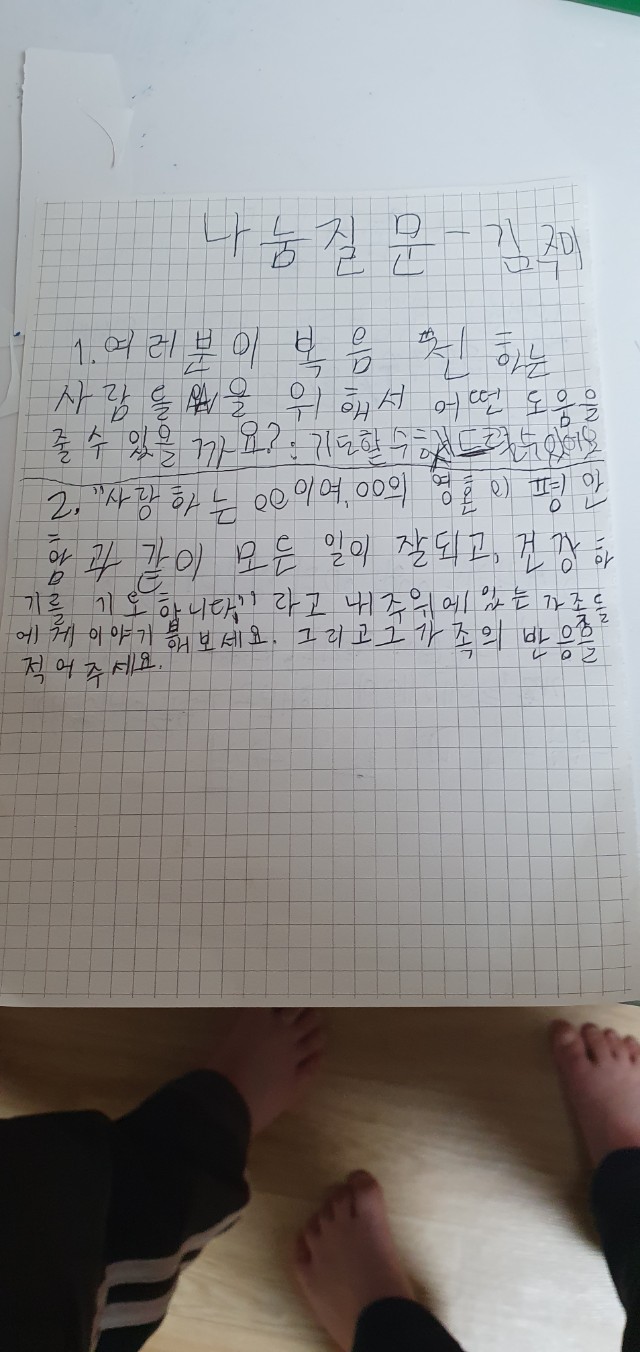 나눔질문-김주
1. 여러분이 복음 전하는
사람들을 위해서 어떤 도움을
줄 수 있을까요?: 기도할 수
2. "사랑하는 00이여, 00의 영혼이 평안
함과 같이 모든 일이 잘되고, 건강하
기를 기도합니다." 라고 내주위에 있는 가족들
에게 이야기 해보세요. 그리고 그 가족의 반응을
적어주세요.